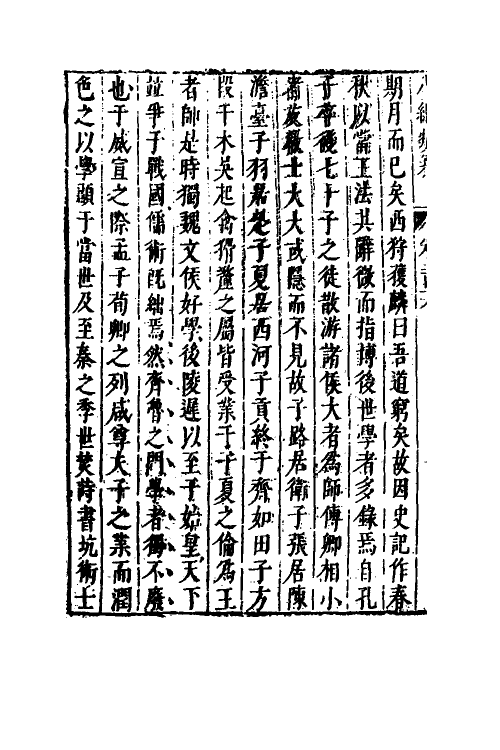 期月而已矣西狩獲麟曰吾道窮矣故因史記作春
秋以當王法其辭微而指博後世學者多錄焉自孔
子卒後七十子之徒散游諸侯大者為師傅卿相小
者友教士大夫或隱而不見故子路居衛子張居陳
澹臺子羽居楚子夏居西河子貢終于齊如田子方
段干木吳起禽滑釐之屬皆受業于子夏之倫為王
者師是時獨魏文侯好學後陵遲以至于始皇天下
並爭于戰國儒術既絀焉然齊魯之門學者獨不廢
也于威宣之際孟子荀卿之列咸尊夫子之業而潤
色之以學顯于當世及至秦之季世焚詩書坑術士